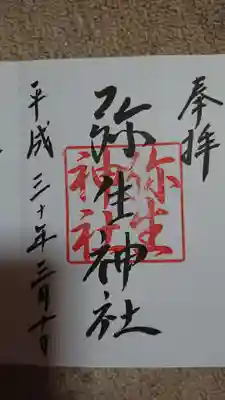 奉拝
弥生神社
弥生
神社
平成三十年三月十日